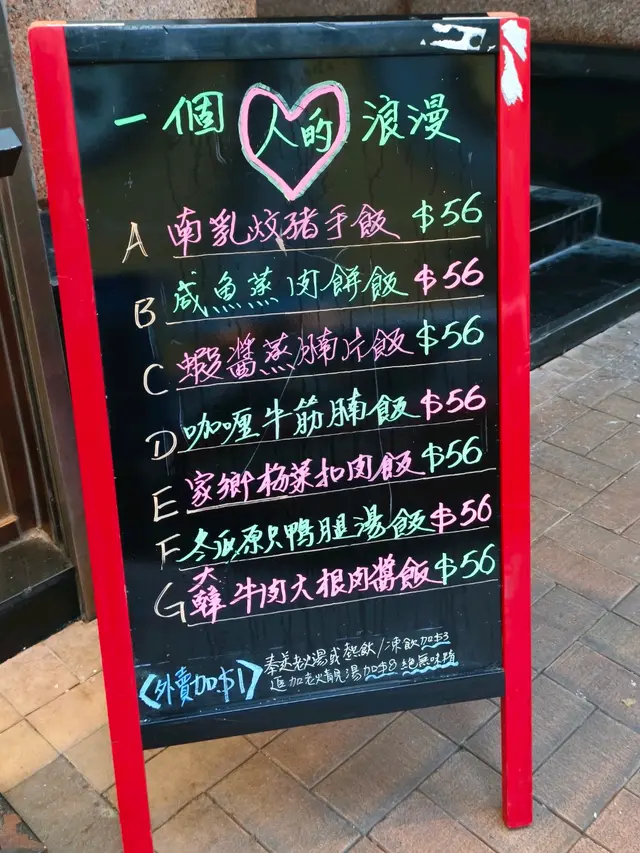 一個人的浪漫
A 南乳炆豬手飯 $56
B 咸魚蒸肉餅飯 $56
C 蝦醬蒸腩片飯 $56
D 咖喱牛筋腩飯 $56
E 家鄉梅菜扣肉飯 $56
F 冬瓜原只鴨腿湯飯 $56
G 大韓牛肉大根肉醬飯 $56
〈外賣加$1〉
奉送老火湯或熱飲/凍飲加$3
追加老火靚湯加$8 絕無味精